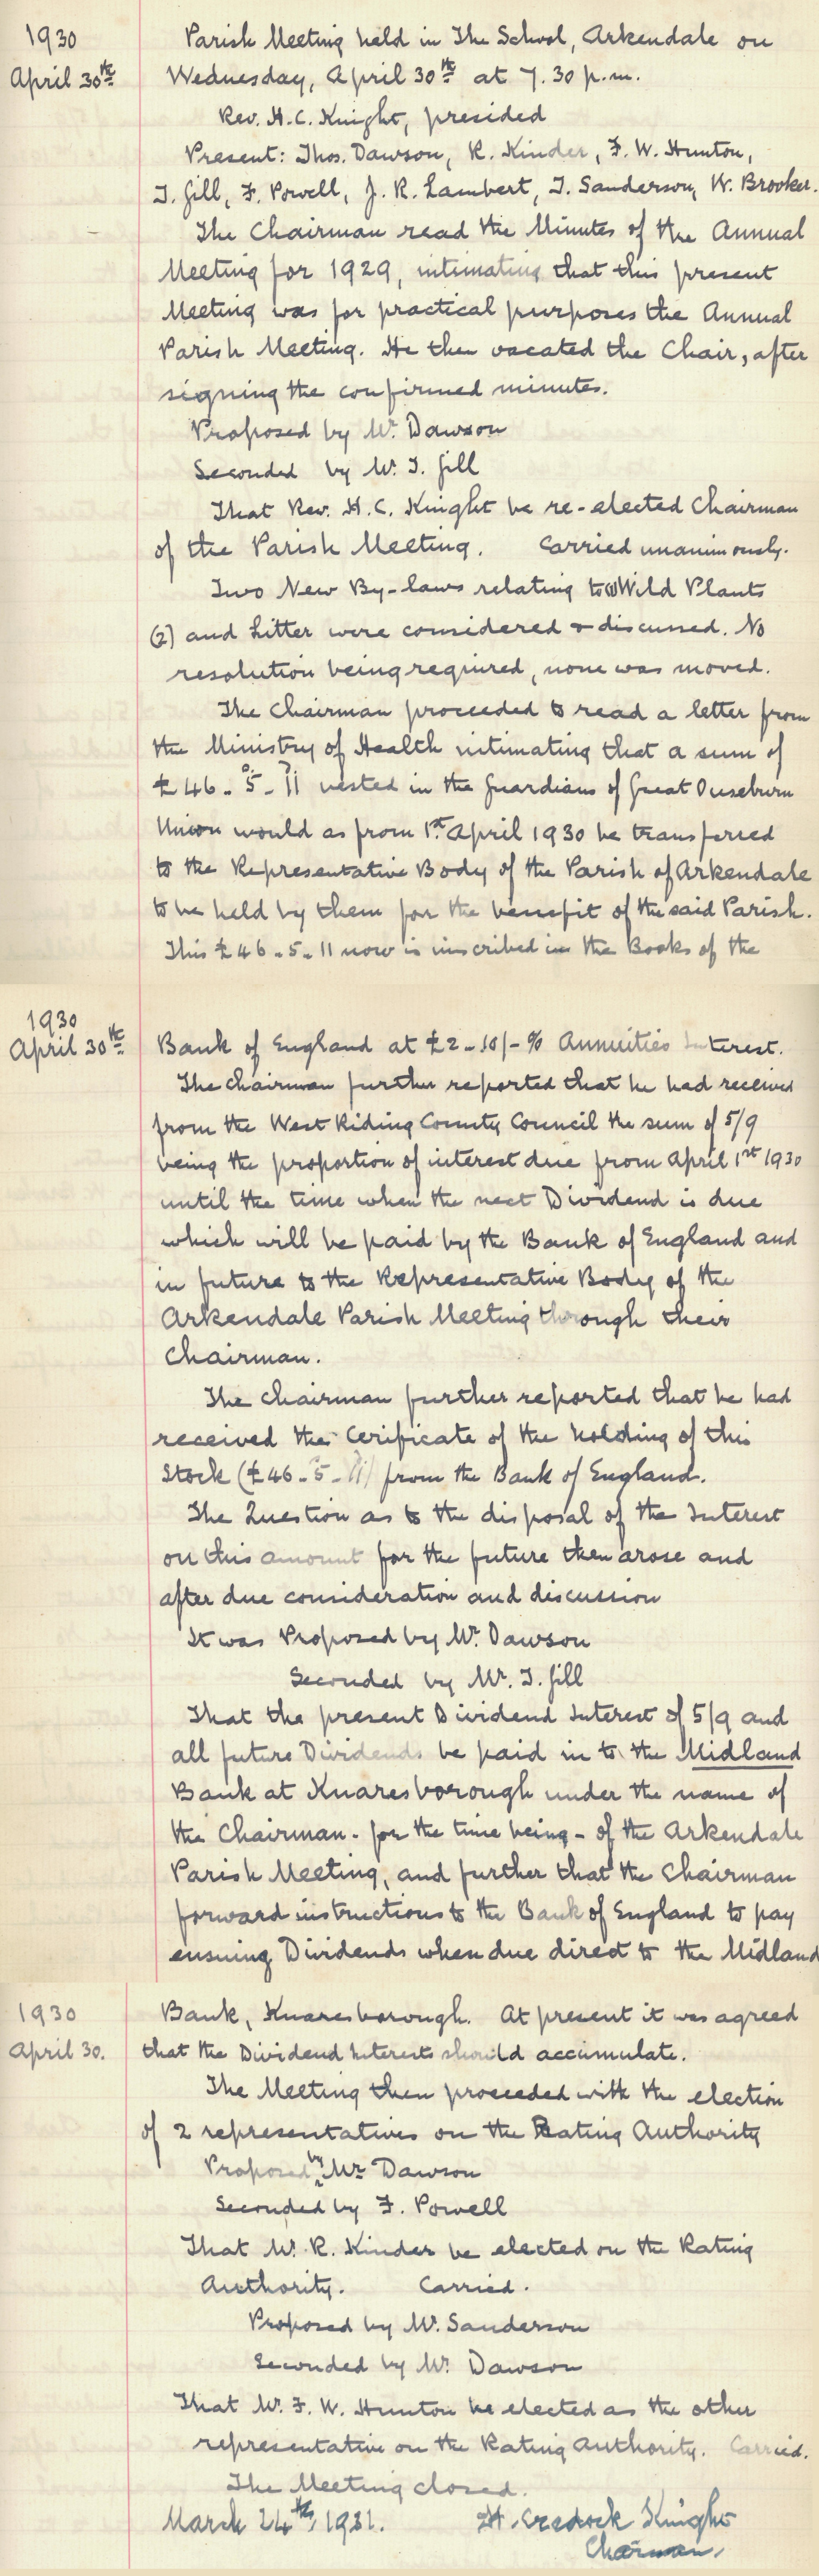 1930
April 30th
Parish Meeting held in The School, Arkendale on
Wednesday, April 30th at 7.30 p.m.
Rev. H.C. Knight, presided
Present: Thos. Dawson, R. Kinder, F. W. Hunton,
T. Gill, F. Powell, J. R. Lambert, T. Sanderson, W. Brooker.
The Chairman read the Minutes of the Annual
Meeting for 1929, intimating that this present
Meeting was for practical purposes the Annual
Parish Meeting. He then vacated the Chair, after
signing the confirmed minutes.
Proposed by Mr. Dawson
Seconded by Mr. T. Gill
That Rev. H.C. Knight be re-elected Chairman
of the Parish Meeting. Carried unanimously.
Two New By-laws relating to (1) Wild Plants
(2) and Litter were considered & discussed. No
resolution being required, none was moved.
The Chairman proceeded to read a letter from
the Ministry of Health intimating that a sum of
£46-5-11 vested in the Guardians of Great Ouseburn
Union would as from 1st April 1930 be transferred
to the Representative Body of the Parish of Arkendale
to be held by them for the benefit of the said Parish.
This £46-5-11 now is inscribed in the Books of the
1930
April 30th
Bank of England at £2-10/-% Annuities Interest.
The Chairman further reported that he had received
from the West Riding County Council the sum of 5/9
being the proportion of interest due from April 1st 1930
until the time when the next Dividend is due
which will be paid by the Bank of England and
in future to the Representative Body of the
Arkendale Parish Meeting through their
Chairman.
The Chairman further reported that he had
received the Cerificate of the holding of this
Stock (£46-5-11) from the Bank of England.
The Question as to the disposal of the Interest
on this amount for the future then arose and
after due consideration and discussion
It was Proposed by Mr. Dawson
Seconded by Mr. T. Gill
That the present Dividend Interest of 5/9 and
all future Dividends be paid in to the Midland
Bank at Knaresborough under the name of
the Chairman - for the time being - of the Arkendale
Parish Meeting, and further that the Chairman
forward instructions to the Bank of England to pay
ensuing Dividends when due direct to the Midland
1930
April 30.
Bank, Knaresborough. At present it was agreed
that the Dividend Interests should accumulate.
The Meeting then proceeded with the election
of 2 representatives on the Rating Authority
Proposed by Mr Dawson
Seconded by F. Powell
That Mr. R. Kinder be elected on the Rating
Authority. Carried.
Proposed by Mr. Sanderson
Seconded by Mr. Dawson
That Mr. F. W. Hunton be elected as the other
representative on the Rating Authority. Carried.
The Meeting closed.
March 24th, 1931. H. Cradock Knight
Chairman,